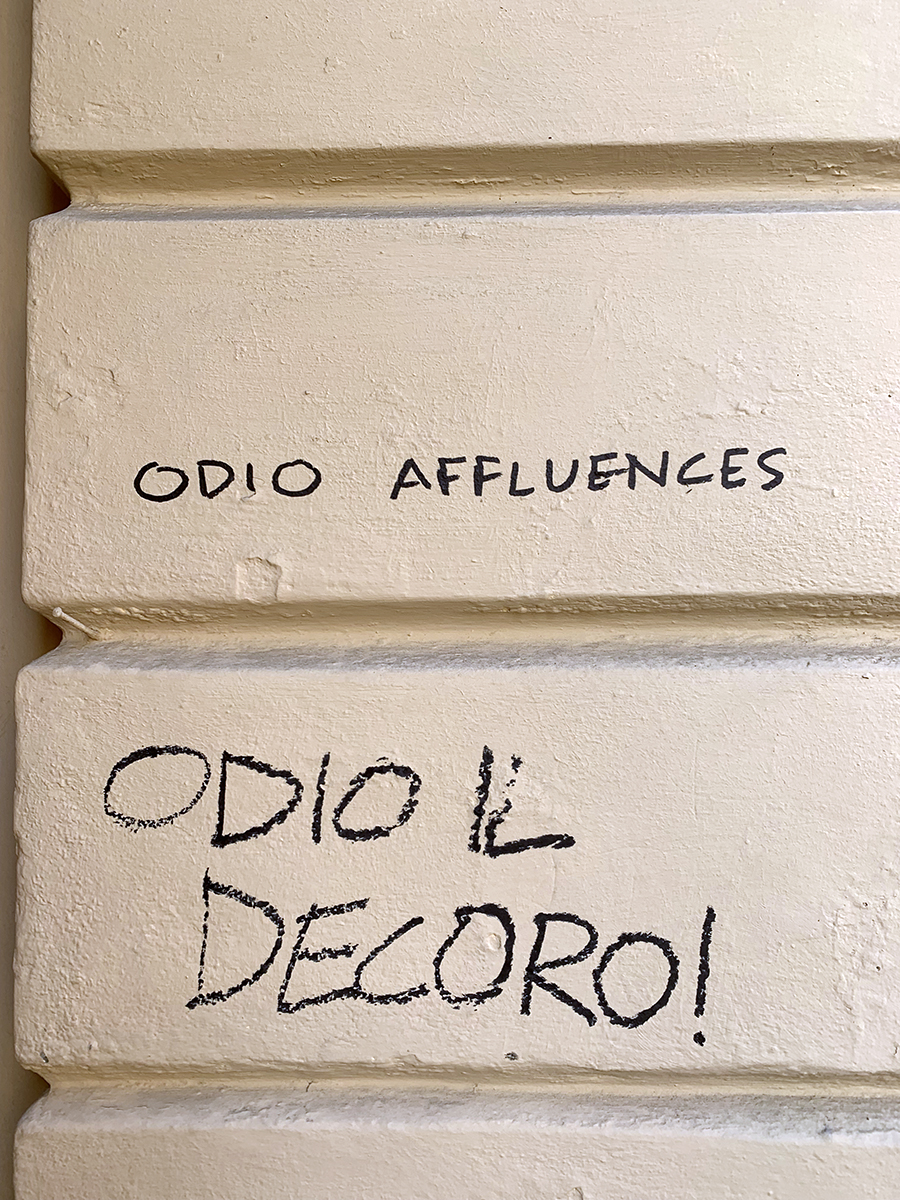 ODIO AFFLUENCES
ODIO IL
DECORO!